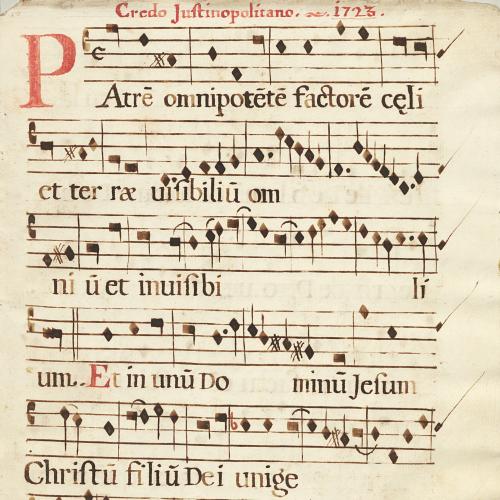 Credo Justinopolitano. 1723.
PAtrē omnipotētē factorē cęli
et ter ræ uisibiliū om
ni ū et inuisibi li
um. Et in unū Do minū Jesum
Christū filiū Dei unige